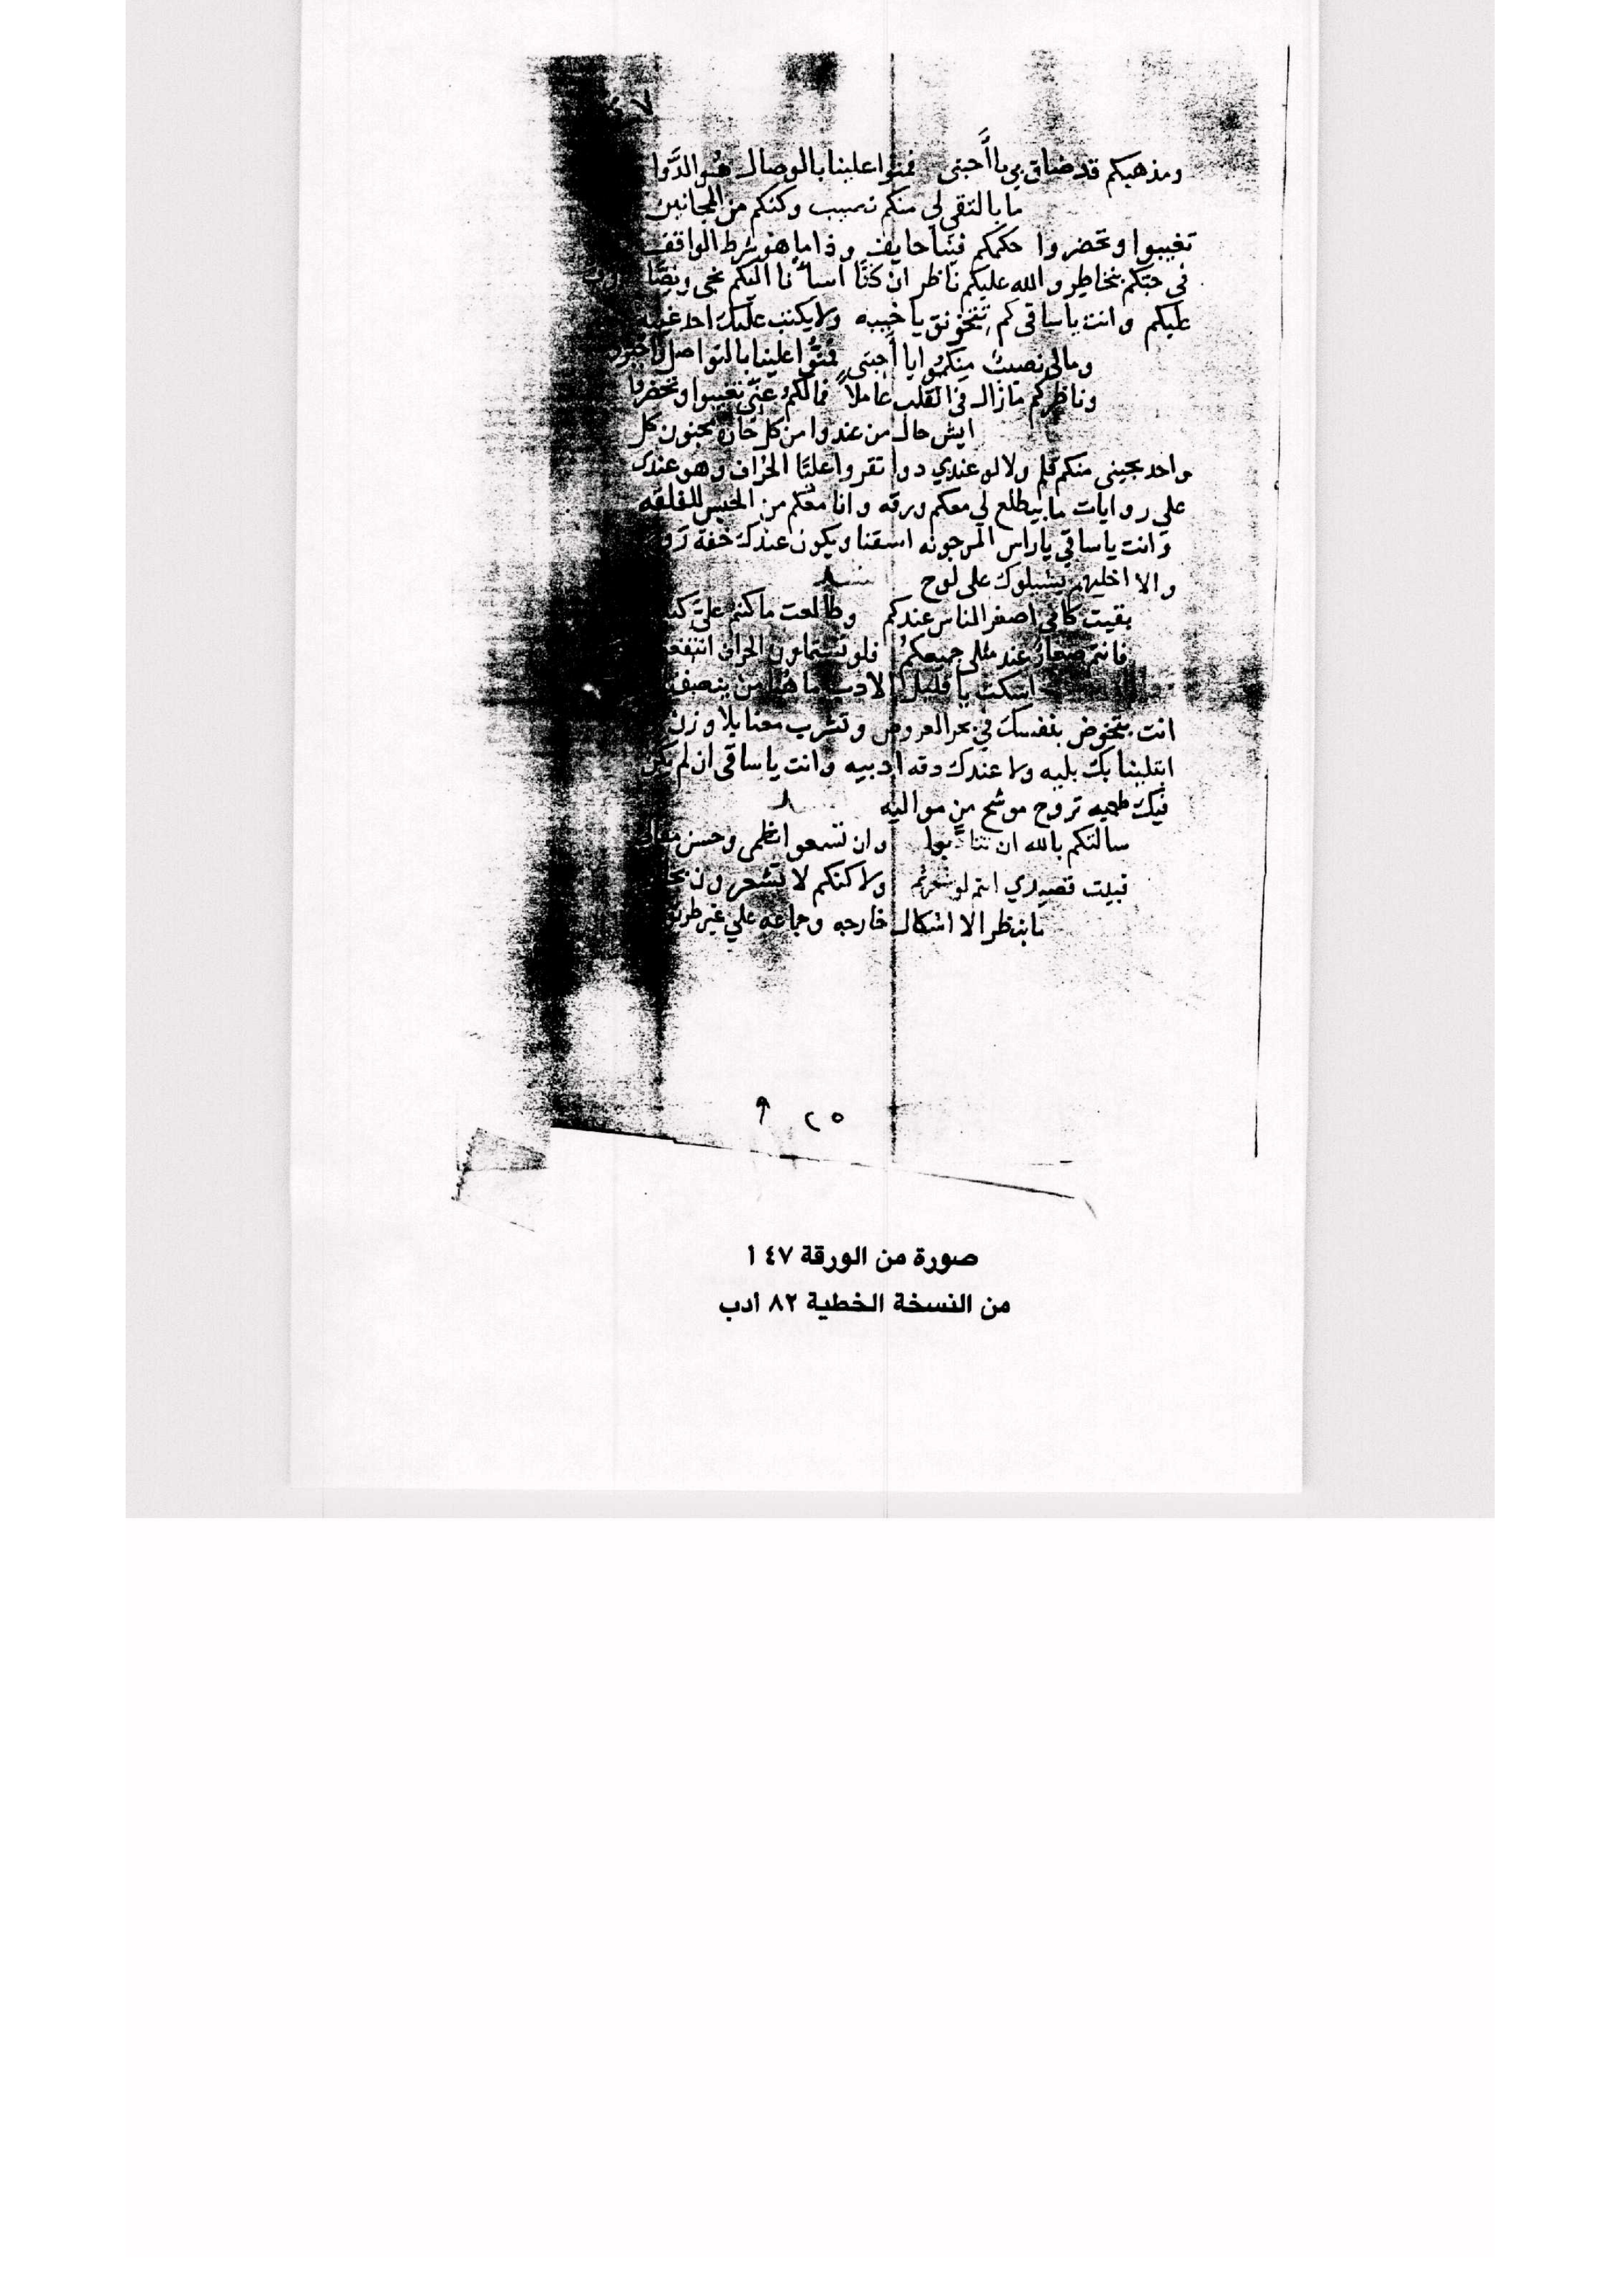 ومذهبكم قد ضاق بي يا أحبتي فمنوا علينا بالوصال هو الدوا
ما بالتقي لي منكم نصيب وكنكم من المجانين
تغيبوا وتحضروا حكمكم فينا حايف وذا ما هو شرط الواقف
في حبكم نخاطر والله عليكم ناظر ان كنا أسأنا اليكم نجي ونصا
عليكم وانت يا ساقي كم تتخونق يا خيبه ولا يكتب عليك احد غيبه
ومالي نصيب منكموا يا أحبتي فمنوا علينا بالتواصل
وناظركم مازال في القلب عاملاً فمالكم عني تغيبوا وتحضروا
ايش حال من عندوا من كل خان مجنون كل
واحد يجيني منكم قلم ولا لو عندي دوا تقروا علينا الحراف وهو عندك
علي روايات ما بيطلع لي معكم ورقه وانا معكم من الحبس للفلقه
وانت يا ساقي يا راس المرجونه اسقنا ويكون عندك خفة
والا اخليهم يشيلوك على لوح
بقيت كاني اصغر الناس عندكم وطالعت ما كنتم علي
فانتم صغار عند مثلي جميعكم فلو
اسكت يا قليل الادب ما هنا من ينصف
انت بتخوض بنفسك في بحر العروض وتشرب معنا بلا وزن
ابتلينا بك بليه ولا عندك دقه ادبيه وانت يا ساقي ان لم يكن
فيك طميه تروح موشح من مواليه
سالتكم بالله ان وان تسمعوا نظمي وحسن
قصيدي انتم لو شعرتم ولا كنكم لا تشعرون
ما بنظر الا اشكال خارجه وجماعه علي غير طريق
٢٥
صورة من الورقة ٤٧ أ
من النسخة الخطية ٨٢ أدب